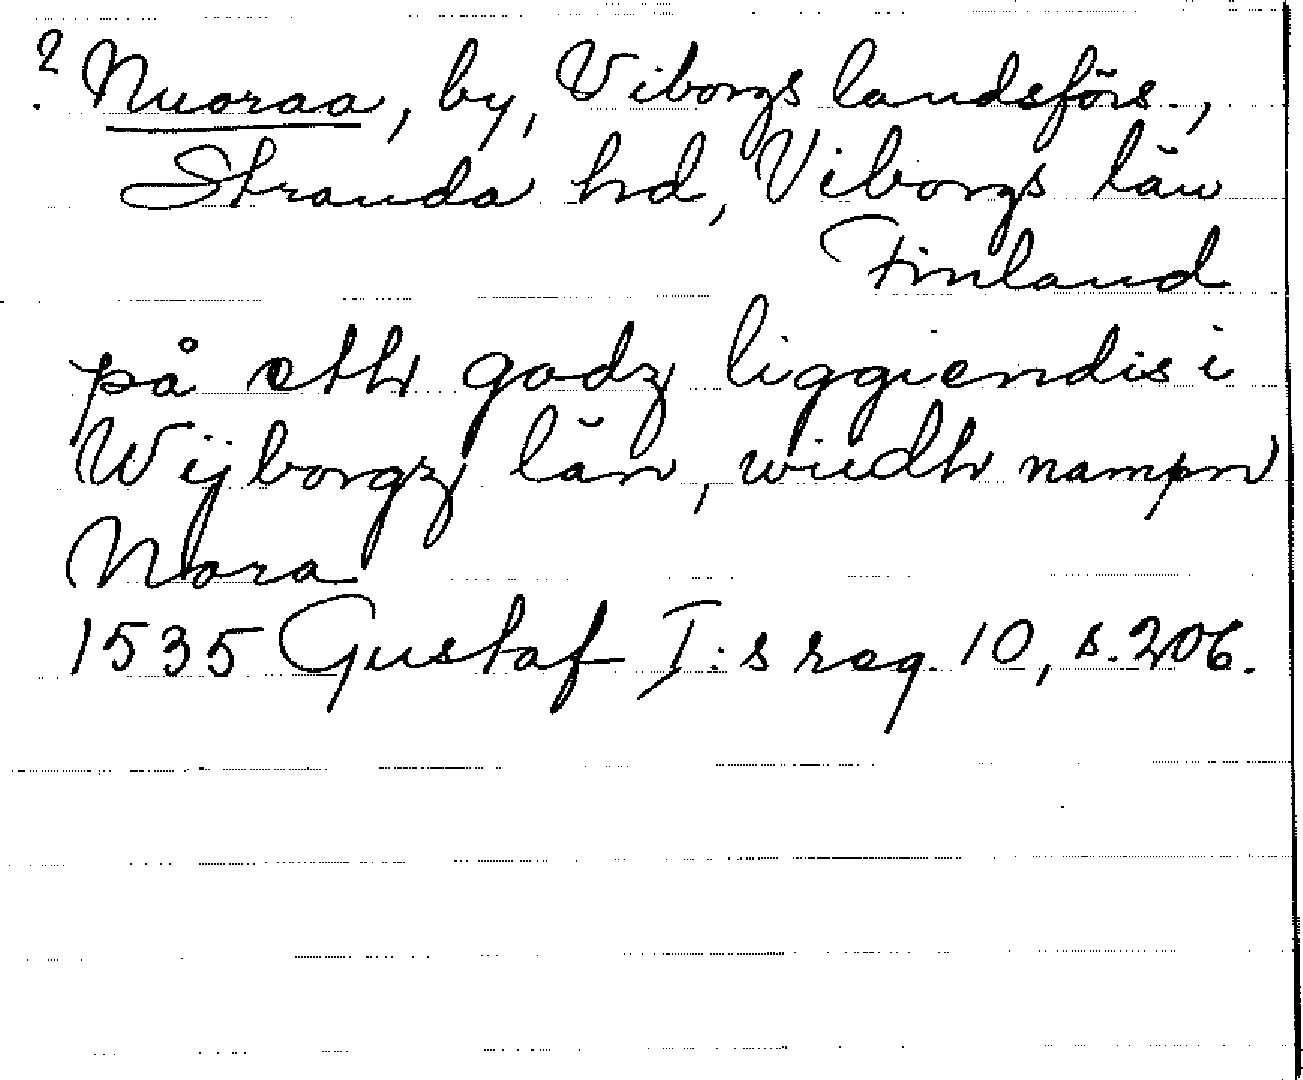 ? Nuoraa, by, Viborgs landsförs.,
Stranda hd, Viborgs län
Finland
på etth godz liggiendis i
Wijborgz län, widh nampn
Nora
1535 Gustaf I:s reg. 10, s. 206.